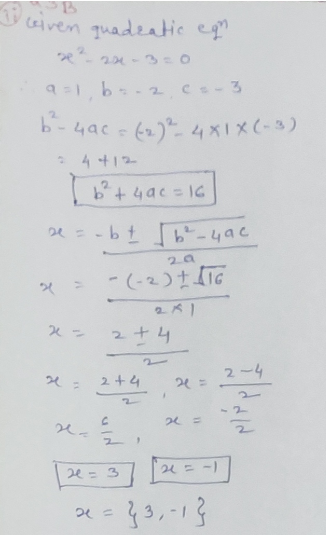 1i
Given quadratic eqⁿ
x² - 2x - 3 = 0
a = 1, b = -2, c = -3
b² - 4ac = (-2)² - 4 × 1 × (-3)
= 4 + 12
b² + 4ac = 16
x = -b ± √b² - 4ac / 2a
x = -(-2) ± √16 / 2 × 1
x = 2 ± 4 / 2
x = 2 + 4 / 2 , x = 2 - 4 / 2
x = 6 / 2 , x = -2 / 2
x = 3 x = -1
x = {3, -1}